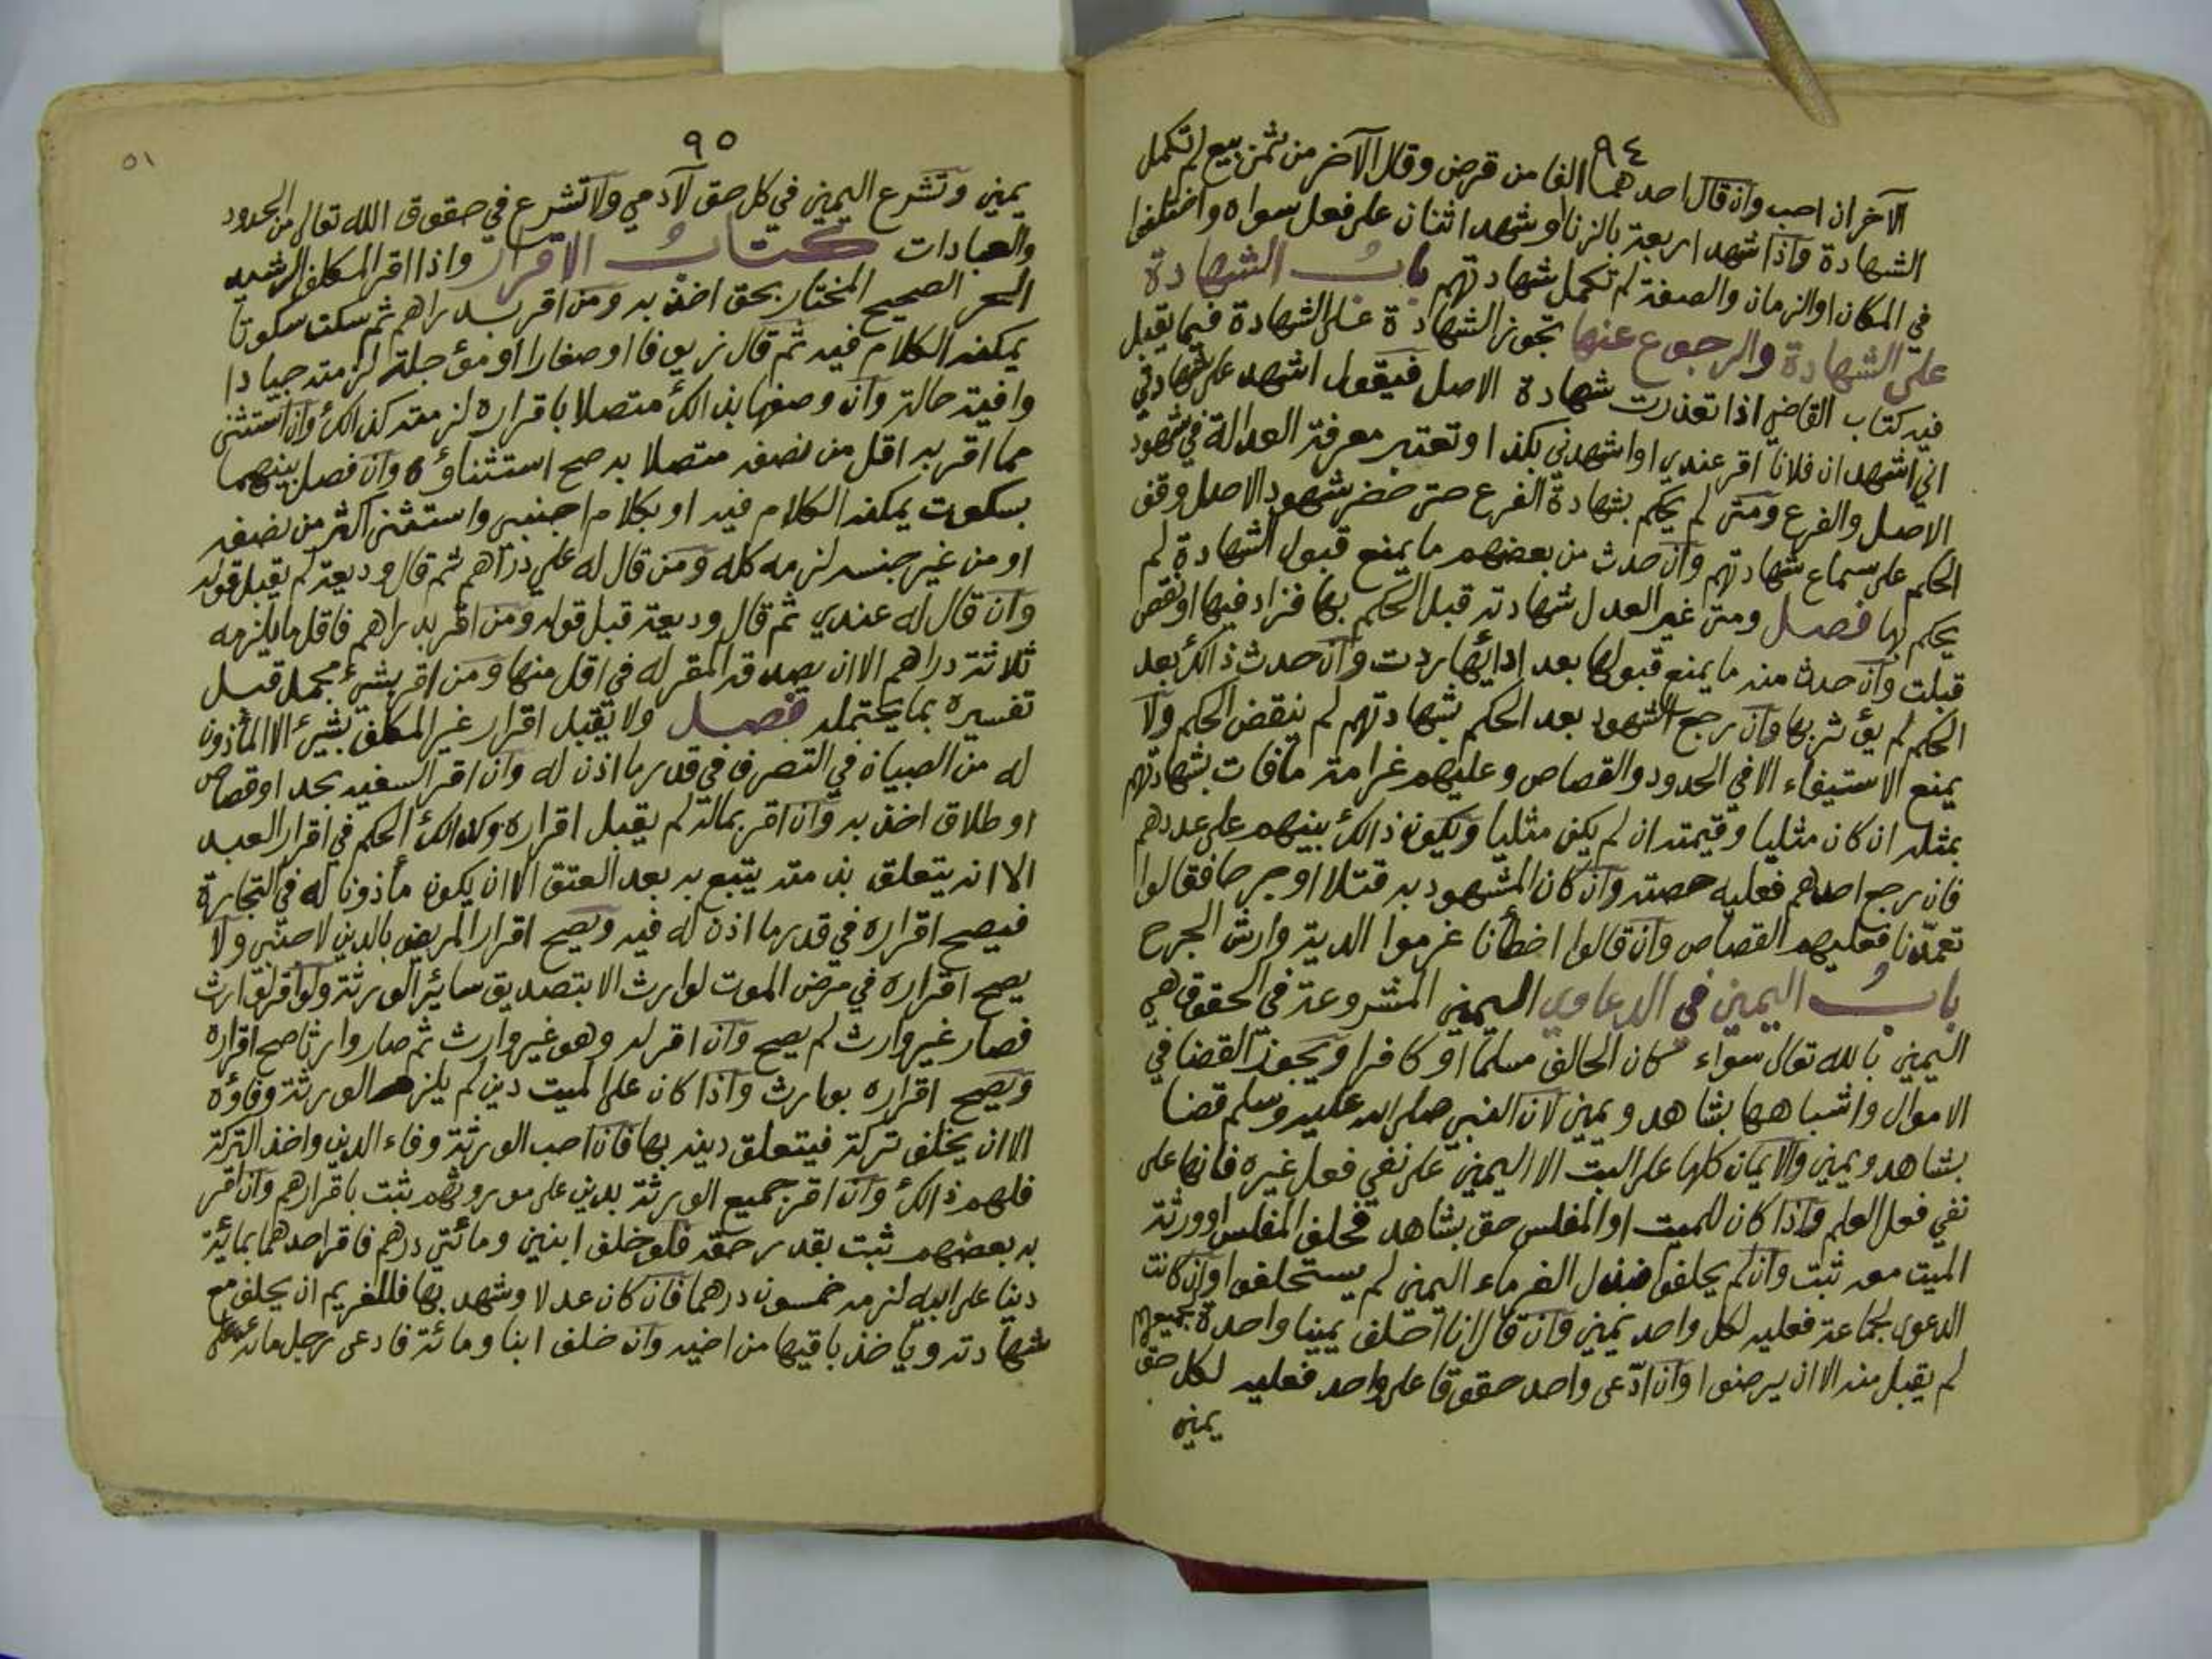 ٩٤
الآخران احب وان قال احدهما الفا من قرض وقال الآخر من ثمن بيع لم تكمل
الشهادة واذا شهد اربعة بالزنا وشهد اثنان على فعل سواه واختلفوا
في المكان او الزمان والصفة لم تكمل شهادتهم باب الشهادة
على الشهادة والرجوع عنها تجوز الشهادة على الشهادة فيما يقبل
فيه كتاب القاضي اذا تعذرت شهادة الاصل فيقول اشهد على شهادتي
اني اشهد ان فلانا اقر عندي او اشهدني بكذا وتعتبر معرفة العدالة في شهود
الاصل والفرع ومتى لم يحكم بشهادة الفرع حتى حضر شهود الاصل وقف
الحكم على سماع شهادتهم وان حدث من بعضهم ما يمنع قبول الشهادة لم
يحكم لها فصل ومتى غير العدل شهادته قبل الحكم بها فزاد فيها او نقص
قبلت وان حدث منه ما يمنع قبولها بعد ادائها ردت وان حدث ذالك بعد
الحكم لم يؤثر بها وان رجع الشهود بعد الحكم بشهادتهم لم ينقض الحكم ولا
يمنع الاستيفاء الا في الحدود والقصاص وعليهم غرامة مافات بشهادتهم
بمثله ان كان مثليا وقيمته ان لم يكن مثليا ويكون ذالك بينهم على عددهم
فان رجع احدهم فعليه حصته وان كان المشهود به قتلا او جرحا فقالوا
تعمدنا فعليهم القصاص وان قالوا اخطأنا غرموا الدية وارش الجرح
باب اليمين في الدعاوي اليمين المشروعة في الحقوق هي
اليمين بالله تعالى سواء كان الحالف مسلما او كافرا ويجوز القضا في
الاموال واشباهها بشاهد ويمين لان النبي صلى الله عليه وسلم قضا
بشاهد ويمين والايمان كلها على البت الا اليمين على نفي فعل غيره فانها على
نفي فعل العلم واذا كان للميت او المفلس حق بشاهد فحلف المفلس او ورثة
الميت معه ثبت وان لم يحلفوا فبذل الغرماء اليمين لم يستحلفوا وان كانت
الدعوى لجماعة فعليه لكل واحد يمين وان قال انا احلف يمينا واحدة لجميعهم
لم يقبل منه الا ان يرضوا وان ادّعى واحد حقوقا على واحد فعليه لكل حق
يمين
٩٥
٥١
يمين وتشرع اليمين في كل حق لآدمي ولا تشرع في حقوق الله تعالى من الحدود
والعبادات كتاب الاقرار واذا اقر المكلف الرشيد
الحر الصحيح المختار بحق اخذ به ومن اقر بدراهم ثم سكت سكوتا
يمكنه الكلام فيه ثم قال زيوفا او صغارا او مؤجلة لزمته جيادا
وافية حالة وان وصفها بذالك متصلا باقراره لزمته كذالك وان استثنى
مما اقر به اقل من نصفه متصلا به صح استثناؤه وان فصل بينهما
بسكوت يمكنه الكلام فيه او بكلام اجنبي واستثنى اكثر من نصفه
او من غير جنسه لزمه كله ومن قال له علي دراهم ثم قال وديعة لم يقبل قوله
وان قال له عندي ثم قال وديعة قبل قوله ومن اقر بدراهم فاقل ما يلزمه
ثلاثة دراهم الا ان يصدقه المقر له في اقل منها ومن اقر بشيء مجمل قبل
تفسيره بما يحتمله فصل ولا يقبل اقرار غير المكلف بشيء الا المأذون
له من الصبيان في التصرف في قدر ما اذن له وان اقر السفيه بحد او قصاص
او طلاق اخذ به وان اقر بمال لم يقبل اقراره وكذالك الحكم في اقرار العبد
الا انه يتعلق بذمته يتبع به بعد العتق الا ان يكون مأذونا له في التجارة
فيصح اقراره في قدر ما اذن له فيه ويصح اقرار المريض بالدين لاجنبي ولا
يصح اقراره في مرض الموت لوارث الا بتصديق سائر الورثة ولو اقر لوارث
فصار غير وارث لم يصح وان اقر له وهو غير وارث ثم صار وارثا صح اقراره
ويصح اقراره بوارث واذا كان على الميت دين لم يلزم الورثة وفاؤه
الا ان يخلف تركة فيتعلق دينه بها فان احب الورثة وفاء الدين واخذ التركة
فلهم ذالك وان اقر جميع الورثة بدين على موروثهم ثبت باقرارهم وان اقر
به بعضهم ثبت بقدر حقه فلو خلف ابنين ومائتي درهم فاقر احدهما بمائة
دينا على ابيه لزمه خمسون درهما فان كان عدلا وشهد بها فللغريم ان يحلف مع
شهادته ويأخذ باقيها من اخيه وان خلف ابنا ومائة فادعى رجل مائة على